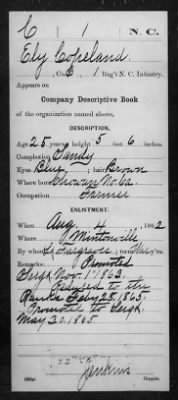 C | 1 | N.C.
Ely Copeland
, Co. C, 1 Reg't N. C. Infantry.
Appears on
Company Descriptive Book
of the organization named above.
DESCRIPTION.
Age 25 years; height 5 feet 6 inches.
Complexion Sandy
Eyes Blue; hair Brown
Where born Chowan N. Ca.
Occupation Farmer
ENLISTMENT.
When Aug. 4, 1862
Where Mintonville
By whom ; term War y's.
Remarks: Promoted
Sergt. Nov. 1" 1863.
Reduced to the
Ranks Feby 25. 1865.
Promoted to Sergt.
May 20. 1865.
Jenkins
Copyist.